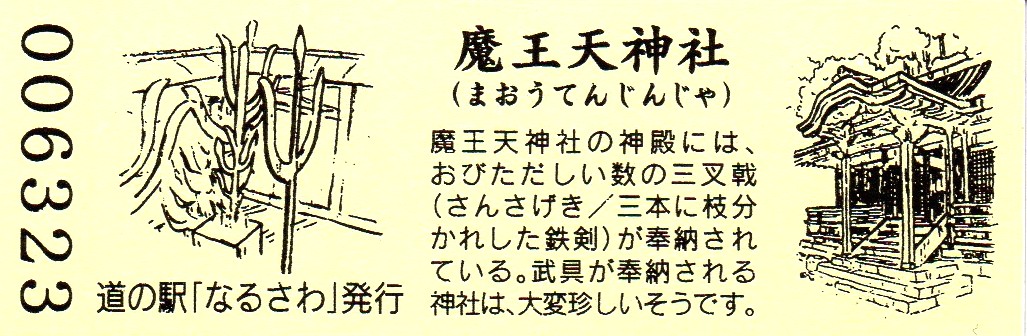 006323
道の駅「なるさわ」発行
魔王天神社
(まおうてんじんじゃ)
魔王天神社の神殿には、
おびただしい数の三叉戟
(さんさげき／三本に枝分
かれした鉄剣)が奉納され
ている。武具が奉納される
神社は、大変珍しいそうです。